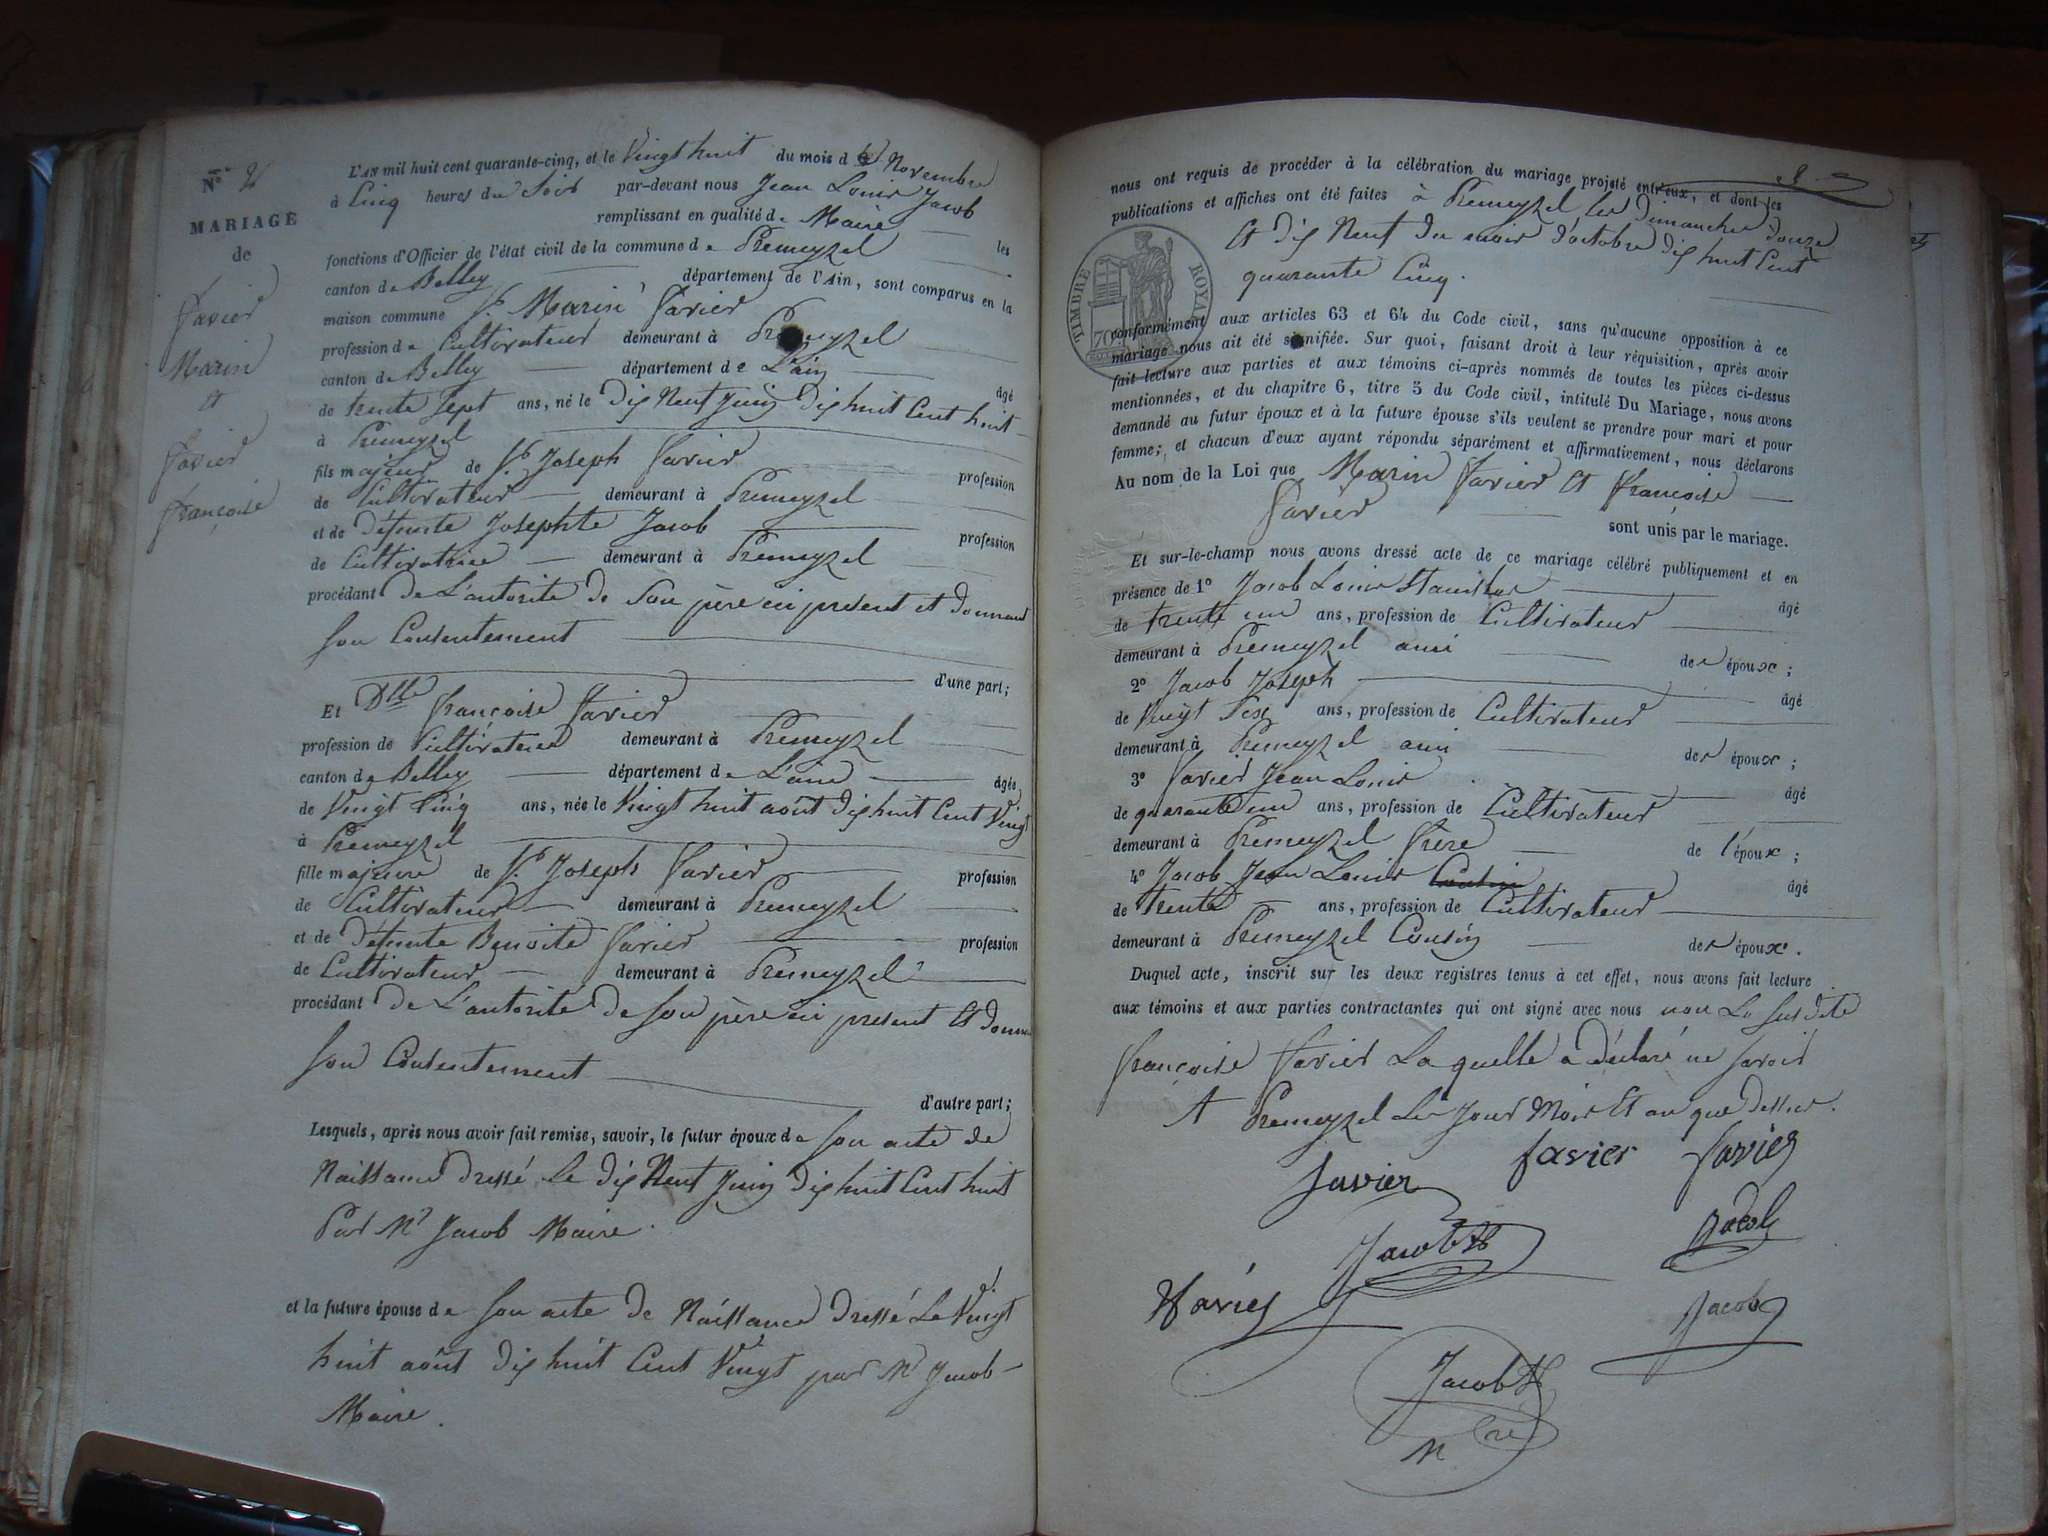 N° 2
MARIAGE
de
Favier
Marin
et
Favier
françoise
L'AN mil huit cent quarante-cinq, et le Vingt huit du mois de Novembre
à Cinq heures du Soir par-devant nous Jean Louis Jacob
remplissant en qualité de Maire les
fonctions d'Officier de l'état civil de la commune de Premeyzel
canton de Belley département de l'Ain, sont comparus en la
maison commune Sr. Marin Favier
profession de Cultivateur demeurant à Premeyzel
canton de Belley département de L'ain âgé
de trente Sept ans, né le dix Neuf Juin dix huit Cent huit
à Premeyzel
fils majeur de Sr. Joseph Favier profession
de Cultivateur demeurant à Premeyzel
et de Défunte Josephte Jacob profession
de Cultivatrice demeurant à Premeyzel
procédant de L'autorité de Son père ici présent et donnant
Son Consentement
d'une part;
Et Dlle françoise Favier
profession de Cultivateur demeurant à Premeyzel
canton de Belley département de L'ain âgée
de Vingt Cinq ans, née le Vingt huit août dix huit Cent Vingt
à Premeyzel
fille majeure de Sr. Joseph Favier profession
de Cultivateur demeurant à Premeyzel
et de Défunte Benoite Favier profession
de Cultivateur demeurant à Premeyzel
procédant de L'autorité de Son père ici présent Et donn
Son Consentement
d'autre part;
Lesquels, après nous avoir fait remise, savoir, le futur époux de Son acte de
Naissance dressé Le dix Neuf Juin dix huit Cent huit
Par Mr Jacob Maire.
et la future épouse de Son acte de Naissance dressé Le Vingt
huit août dix huit Cent Vingt par Mr Jacob
Maire.
nous ont requis de procéder à la célébration du mariage projeté entr'eux, et dont les
publications et affiches ont été faites à Premeyzel les dimanches douze
Et dix Neuf du mois d'octobre dix huit Cent
quarante Cinq.
TIMBRE ROYAL
70
conformément aux articles 63 et 64 du Code civil, sans qu'aucune opposition à ce
mariage nous ait été signifiée. Sur quoi, faisant droit à leur réquisition, après avoir
fait lecture aux parties et aux témoins ci-après nommés de toutes les pièces ci-dessus
mentionnées, et du chapitre 6, titre 5 du Code civil, intitulé Du Mariage, nous avons
demandé au futur époux et à la future épouse s'ils veulent se prendre pour mari et pour
femme; et chacun d'eux ayant répondu séparément et affirmativement, nous déclarons
Au nom de la Loi que Marin Favier Et françoise
Favier sont unis par le mariage.
Et sur-le-champ nous avons dressé acte de ce mariage célébré publiquement et en
présence de 1° Jacob Louis Stanislas âgé
de trente un ans, profession de Cultivateur
demeurant à Premeyzel ami des époux;
2° Jacob Joseph âgé
de Vingt Six ans, profession de Cultivateur
demeurant à Premeyzel ami des époux;
3° Favier Jean Louis âgé
de quarante un ans, profession de Cultivateur
demeurant à Premeyzel frère de l'époux;
4° Jacob Jean Louis âgé
de trente ans, profession de Cultivateur
demeurant à Premeyzel Cousin des époux.
Duquel acte, inscrit sur les deux registres tenus à cet effet, nous avons fait lecture
aux témoins et aux parties contractantes qui ont signé avec nous non La Susdite
françoise Favier La quelle a déclaré ne Savoir
A Premeyzel Les Jour Mois Et an que dessus.
Favier favier favier
Jacob Jacob
Favier Jacob
Jacob